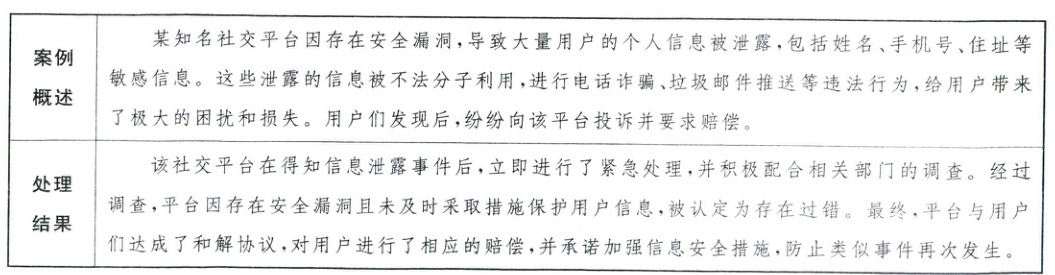 案例
概述
某知名社交平台因存在安全漏洞,导致大量用户的个人信息被泄露,包括姓名、手机号、住址等
敏感信息。这些泄露的信息被不法分子利用,进行电话诈骗、垃圾邮件推送等违法行为,给用户带来
了极大的困扰和损失。用户们发现后,纷纷向该平台投诉并要求赔偿。
处理
结果
该社交平台在得知信息泄露事件后,立即进行了紧急处理,并积极配合相关部门的调查。经过
调查,平台因存在安全漏洞且未及时采取措施保护用户信息,被认定为存在过错。最终,平台与用户
们达成了和解协议,对用户进行了相应的赔偿,并承诺加强信息安全措施,防止类似事件再次发生。